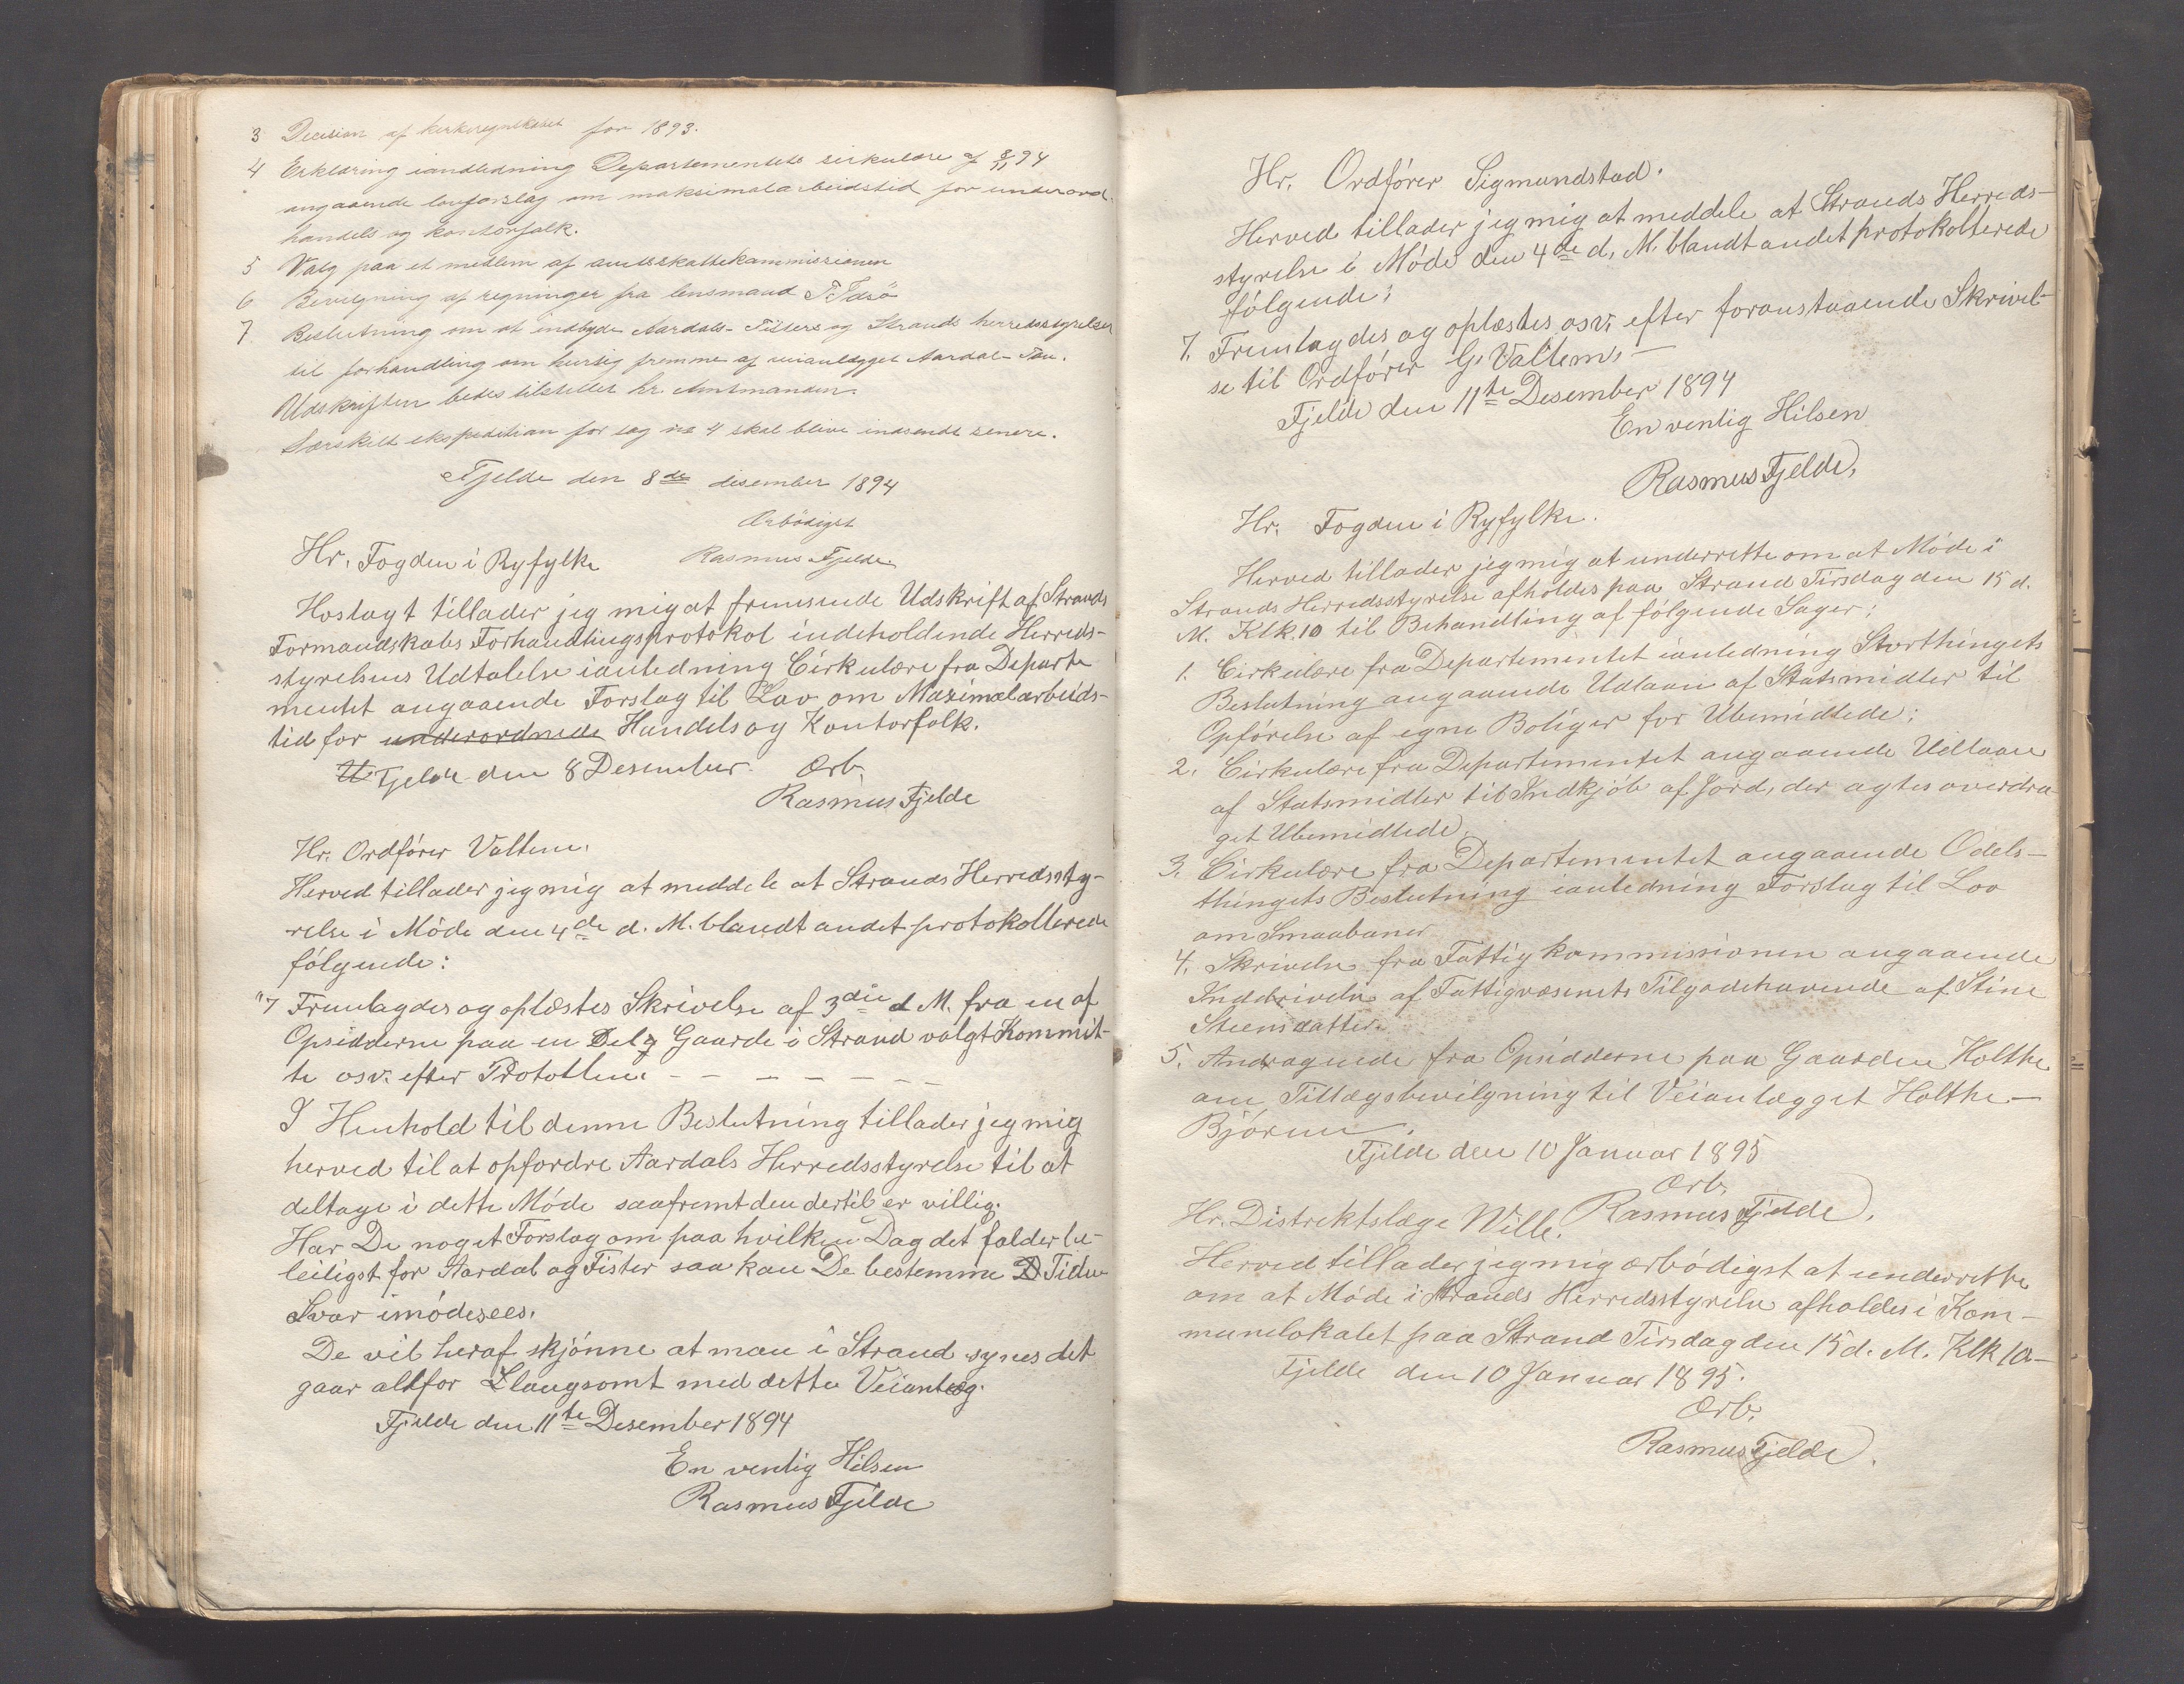 3 Decision af kirkeregnskabet for 1893.
4 Erklæring iandledning Departementets sirkulære af 8/11 94
angaaende lovforslag om maksimalarbeidstid for underord.
handels og kontorfolk.
5 Valg paa et medlem af amtsskattekommissionen
6 Bevilgning af regninger fra lensmand T. Idsö
7 Beslutning om at indbyde Aardals- Fisters og Strands herredsstyrelser
til forhandling om hurtig fremme af veianlægget Aardal-Tau.
Udskriften bedes tilstillet hr. Amtmanden.
Særskilt ekspedition for sag no 4 skal blive indsendt senere.
Fjelde den 8de desember 1894
Ærbödigst
Rasmus Fjelde.
Hr. Fogden i Ryfylke
Hoslagt tillader jeg mig at fremsende Udskrift af Strands
Formandskabs Forhandlingsprotokol indeholdende Herreds-
styrelsens Udtalelse ianledning Cirkulære fra Departe
mentet angaaende Forslag til Lov om Maximalarbeids-
tid for underordnede Handels og Kontorfolk.
Fjelde den 8 Desember. Ærb.
Rasmus Fjelde
Hr. Ordförer Valtem.
Herved tillader jeg mig at meddele at Strands Herredssty-
relse i Möde den 4de d. M. blandt andet protokollerede
fölgende:
"7 Fremlagdes og oplæstes Skrivelse af 3die d M. fra en af
Opsidderne paa en Del af Gaarde i Strand valgt Kommit-
te osv. efter Protollen. – – – – – – –
I Henhold til denne Beslutning tillader jeg mig
herved til at opfordre Aardals Herredsstyrelse til at
deltage i dette Möde saafremt den dertil er villig.
Har De noget Forslag om paa hvilken Dag det falder be-
leiligst for Aardal og Fister saa kan De bestemme Tiden
Svar imödesees.
De vil heraf skjönne at man i Strand synes det
gaar altfor langsomt med dette Veianlæg.
Fjelde den 11te Desember 1894
En venlig Hilsen
Rasmus Fjelde
Hr. Ordförer Sigmundstad.
Herved tillader jeg mig at meddele at Strands Herreds-
styrelse i Möde den 4de d. M. blandt andet protokollerede
fölgende:
7. Fremlagdes og oplæstes osv. efter foranstaaende Skrivel-
se til Ordförer G. Valtem. –
Fjelde den 11te Desember 1894
En venlig Hilsen
Rasmus Fjelde,
Hr. Fogden i Ryfylke.
Herved tillader jeg mig at underrette om at Möde i
Strands Herredsstyrelse afholdes paa Strand Tirsdag den 15 d.
M. Klk. 10 til Behandling af fölgende Sager:
1. Cirkulære fra Departementet ianledning Storthingets
Beslutning angaaende Udlaan af Statsmidler til
Opförelse af egne Boliger for Ubemidlede;
2. Cirkulære fra Departementet angaaende Udlaan
af Statsmidler til Indkjöb af Jord, der agtes overdra
get Ubemidlede.
3. Cirkulære fra Departementet angaaende Odels-
thingets Beslutning ianledning Forslag til Lov
om Smaabaner
4. Skrivelse fra Fattigkommissionen angaaende
Inddrivelse af Fattigvæsenets Tilgodehavende af Stine
Steensdatter.
5. Andragende fra Opsidderne paa Gaarden Holthe
om Tillægsbevilgning til Veianlægget Holthe –
Björnn.
Fjelde den 10 Januar 1895
Ærb.
Rasmus Fjelde.
Hr. Distriktslæge Wille.
Herved tillader jeg mig ærbödigst at underrette
om at Möde i Strands Herredsstyrelse afholdes i Kom-
munelokalet paa Strand Tirsdag den 15 d. M. Klk 10 –
Fjelde den 10 Januar 1895.
Ærb.
Rasmus Fjelde.